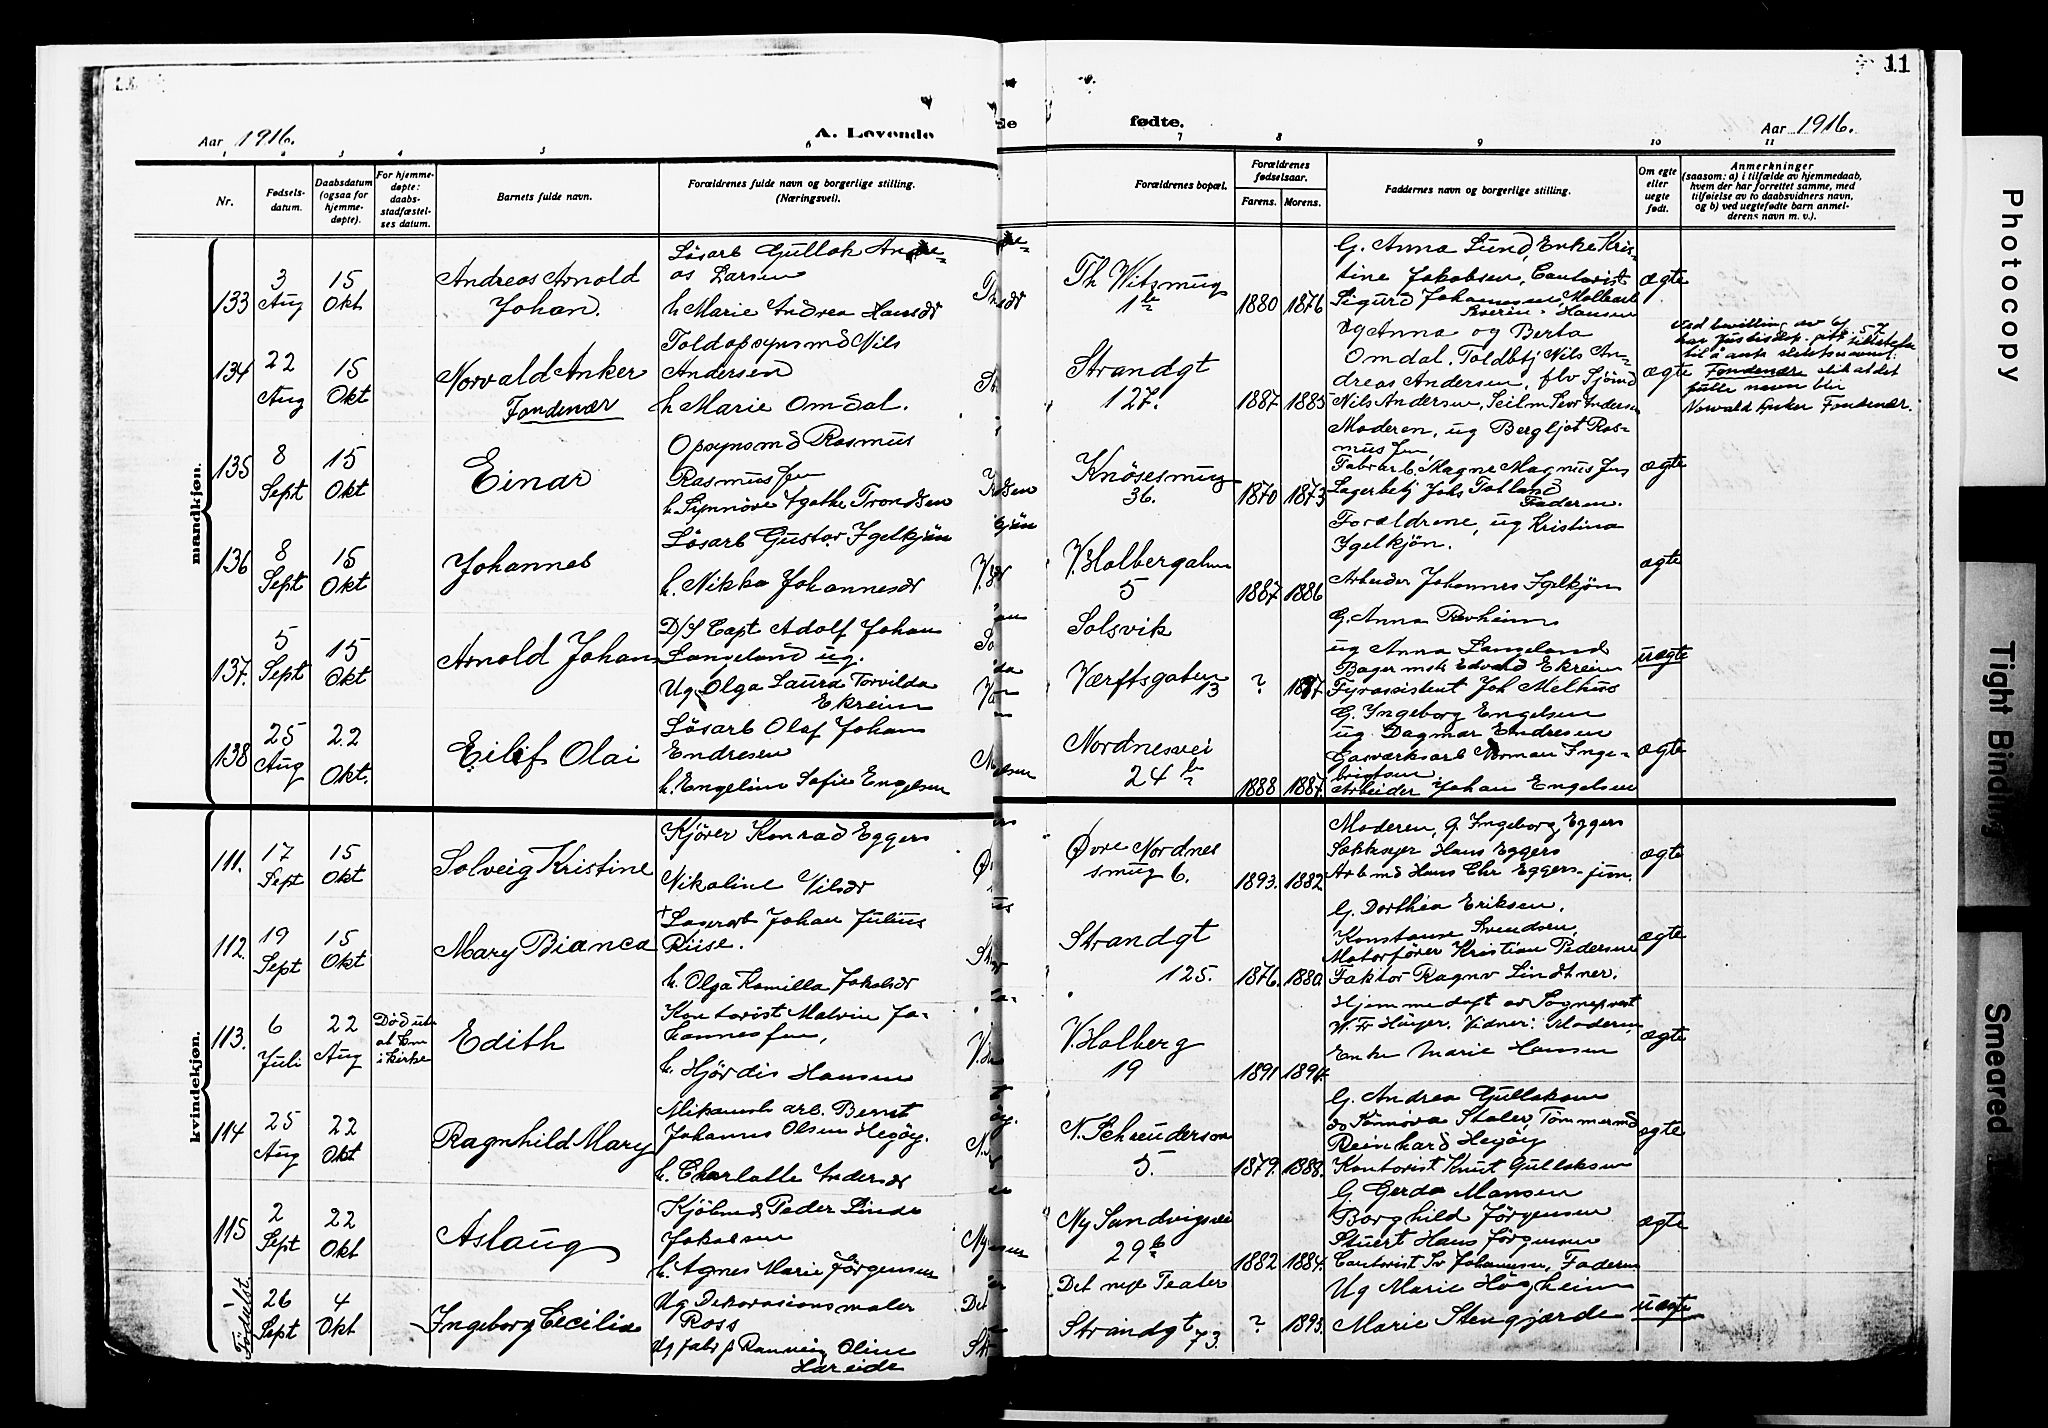 11
Aar 1916.
A. Levende
fødte.
Aar 1916.
1 2 3 4 5 6 7 8 9 10 11
Nr.
Fødsels-
datum.
Daabsdatum
(ogsaa for
hjemme-
døpte).
For hjemme-
døpte:
daabs-
stadfæstel-
ses datum.
Barnets fulde navn.
Forældrenes fulde navn og borgerlige stilling.
(Næringsvei).
Forældrenes bopæl.
Forældrenes
fødselsaar.
Farens. Morens.
Faddernes navn og borgerlige stilling.
Om egte
eller
uegte
født.
Anmerkninger
(saasom: a) i tilfælde av hjemmedaab,
hvem der har forrettet samme, med
tilføielse av to daabsvidners navn,
og b) ved uegtefødte barn anmel-
derens navn m. v.).
mandkjøn.
133
3
Aug
15
Okt
Andreas Arnold
Johan.
Løsarb Gullak Andre-
as Larsen
h Marie Andrea Hansdr
Th Witzmug
1 b
1880 1876
G. Anna Lund, Enke Kris-
tine Jakobsen, Contorist
Sigurd Johannesen, Molbarb
Severin Hansen
ægte
134
22
Aug
15
Okt
Norvald Anker
Fondenær
Toldopsynsmd Nils
Andersen
h Marie Omdal.
Strandgt
127.
1887 1885
Ug Anna og Berta
Omdal. Toldbtj Nils An-
dreas Andersen, flv Sjømd
Nils Andersen, Andersen
ægte
Ved bevilling av
til å anta slektsnavnet:
Fondenær slik at det
fulle navn blir
Norvald Anker Fondenær.
135
8
Sept
15
Okt
Einar
Opsynsmd Rasmus
Rasmussen
h. Synnöve Agathe Trondsen
Knösesmug
36.
1870 1873
Moderen, ug Bergljot Ras-
mussen
Fabrarb. Magne Magnussen
Lagerbetj Johs Totland
Faderen.
ægte
136
8
Sept
15
Okt
Johannes
Løsarb Gustav Igelkjön
h. Nikka Johannesdr
V. Holbergalm
5
1887 1886
Forældrene, ug Kristina
Igelkjön.
Arbeider Johannes Igelkjön
ægte
137.
5
Sept
15
Okt
Arnold Johan
D/S Capt Adolf Johan
Langeland ug.
Ug Olga Laura Torvilda
Ekreim
Solsvik
Værftsgaten
13
? 1887
G. Anna Revheim
ug Anna Langeland
Bagermstr Edvard Ekreim
Fyrassistent Joh Melhus
uægte
138
25
Aug
22
Okt.
Eilif Olai
Løsarb Olaf Johan
Endresen
h. Engeline Sofie Engelsen
Nordnesvei
24 b
1888 1887.
G. Ingeborg Engelsen
ug Dagmar Endresen
Gasværksarb Norman Inge-
brigtsen
Arbeider Johan Engelsen
ægte
kvindekjøn.
111.
17
Sept
15
Okt
Solveig Kristine
Kjører Konrad Eggers
Nikoline Nilsdr
Øvre Nordnes
smug 6.
1893. 1882
Moderen, G Ingeborg Eggers
Sækkeyer Hans Eggers
Arbmd Hans Chr Eggers jun.
ægte
112.
19
Sept
15
Okt
Mary Bianca
Lagerarb Johan Julius
Riise.
h. Olga Kamilla Jakobsdr
Strandgt
125.
1876. 1880.
G. Dorthea Eriksen,
Konstanse Svendsen,
Motorfører Kristian Pedersen
Faktor Ragnv Lindtner.
ægte
113.
6
Juli
22
Aug
Død uten
at
i kirke
Edith
Kontorist Malvin Jo-
hannessen,
h. Hjördis Hansen
V. Holberg
19
1891 1894.
Hjemmedøpt av Sogneprest
W. Fr Höyer. Vidner: Moderen,
Enke Marie Hansen
ægte
114
25
Aug
22
Okt
Ragnhild Mary
Mekanisk arb. Bernt
Johannes Olsen Hegöy.
h. Charlotte Andersdr
N. Schreuderson
5.
1879. 1888.
G. Andrea Gullaksen
do Sunniva Stoler, Tømmermd
Reinhard Hegöy
Kontorist Knut Gullaksen
ægte
115
2
Sept
22
Okt
Aslaug
Kjöbmd Peder Linde
Jakobsen
h. Agnes Marie Jörgensen
Ny Sandvigsvei
29 b
1882 1884.
G. Gerda Monsen
Borghild Jörgensen
Stuert Hans Jörgensen
Contorist Sv Johannesen, Faderen
ægte
Fødselst.
-
26
Sept
4
Okt
Ingeborg Cecilie
Ug Dekorasionsmaler
Ross
Ug fabr p Rannveig Oline
Hareide
Det nye Teater
Strandgt 73.
? 1893.
Ug Marie Högheim
Marie Stengjærde
uægte
Photocopy
Tight Binding
Smeared